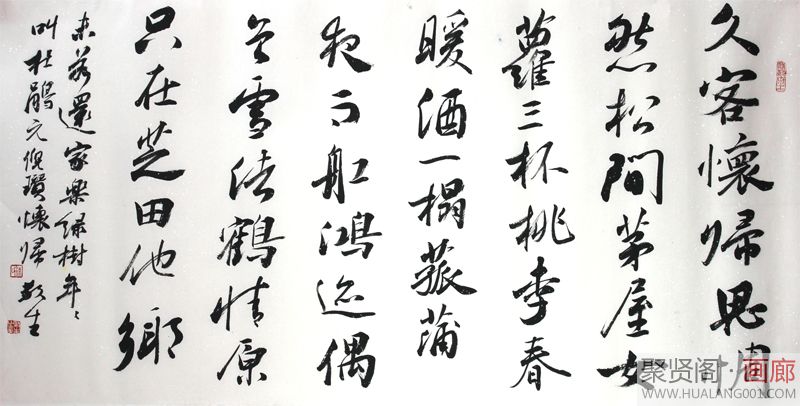 久客懷歸思惘
然松間茅屋女
蘿三杯桃李春
暖酒一榻菰蒲
夜雨舡鴻迹偶
曾雪渚鶴情原
只在芝田他鄉
未若還家樂綠樹年々
叫杜鵑元倪瓚懷歸
聚贤阁·画廊
WWW.HUALANG001.COM